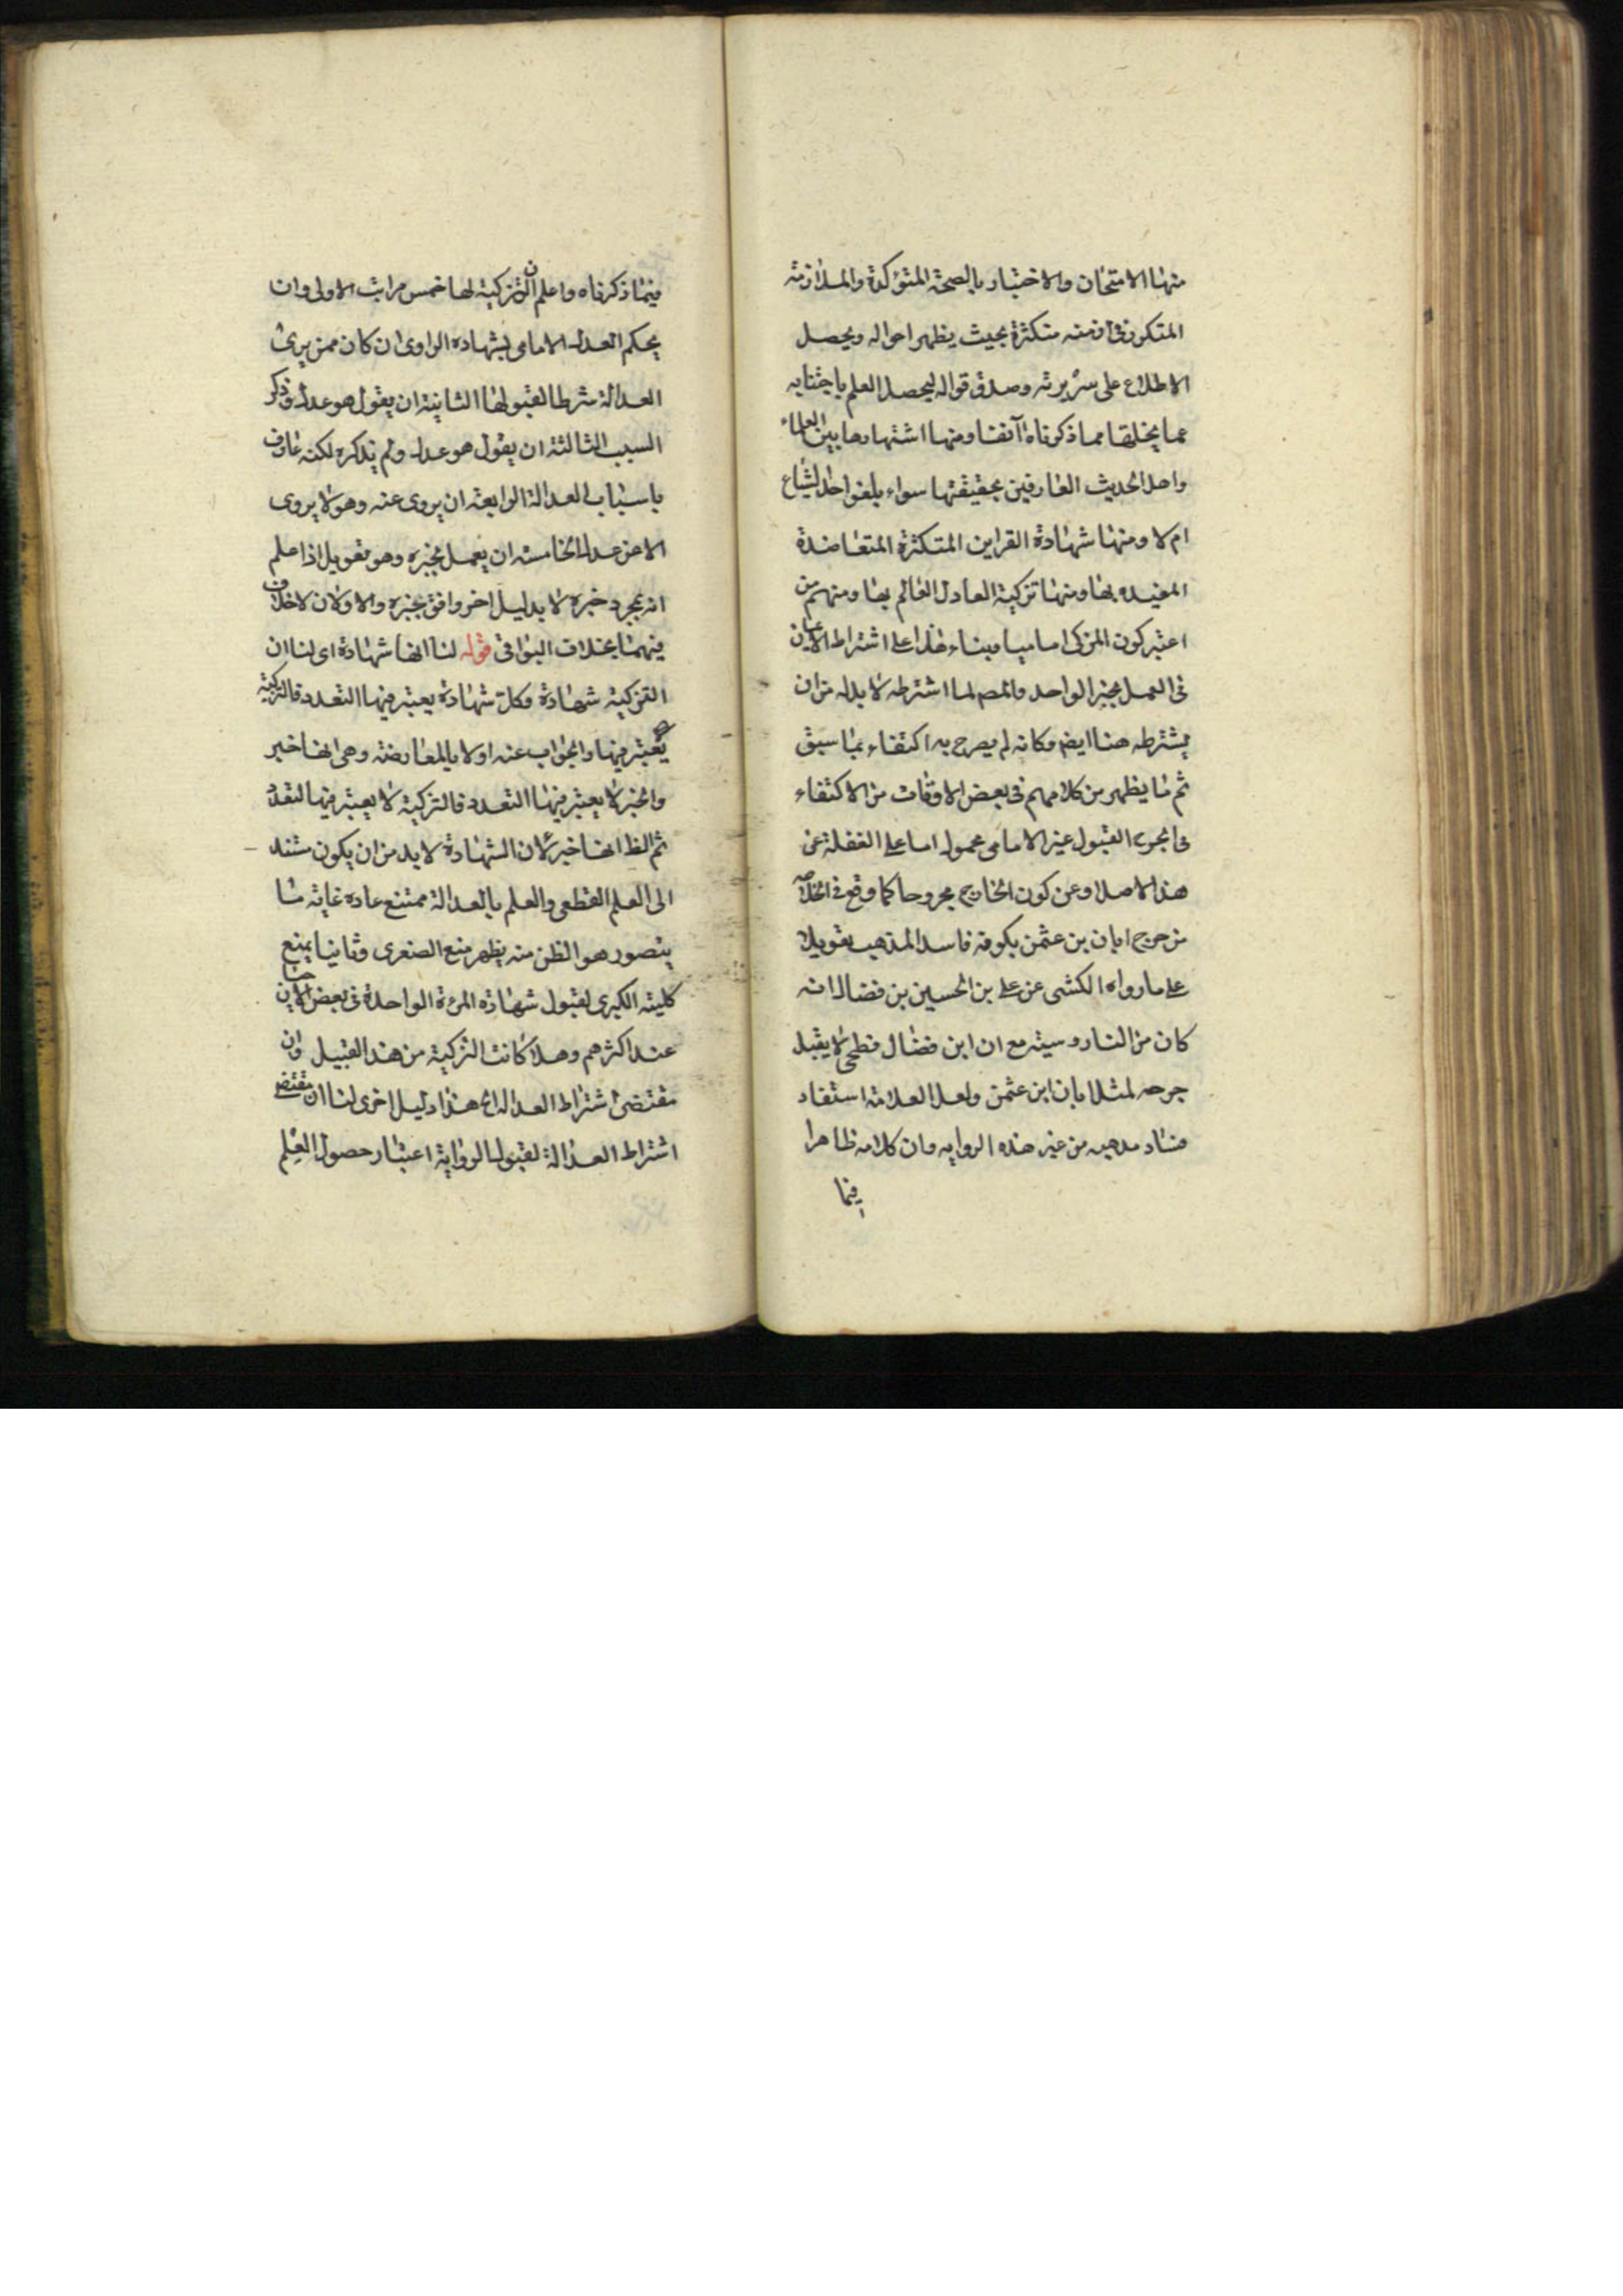 منها الامتحان والاختبار بالصحة المتؤكدة والملازمة
المتكررة في ازمنه متكثرة بحيث يظهر احواله ويحصل
الاطلاع على سريرته وصدق قواله ليحصل العلم باجتنابه
عما يخلقا مما ذكرناه آنفا ومنها اشتهارها بين العلماء
واهل الحديث العارفين بحقيقتها سواء بلغوا حد الشياع
ام لا ومنها شهادة القراين المتكثرة المتعاضدة
المفيده بها ومنها تزكية العادل العالم بها ومنهم من
اعتبر كون المزكى اماميا وبناء هذا على اشتراط الايمان
فى العمل بخبر الواحد والمص لما اشترطه لا بد له من ان
يشترطه هنا ايضا وكانه لم يصرح به اكتفاء بما سبق
ثم ما يظهر من كلامهم فى بعض الاوقات من الاكتفاء
فى الجرح القبول غير الامامى محمول اما على الغفلة عن
هذا الاصل او عن كون الخارج مجروحا كما وقع فى الخلاصه
من جرح ابان بن عثمن بكونه فاسد المذهب تعويلا
على ما رواه الكشى عن على بن الحسين بن فضال انه
كان من الناروسيه مع ان ابن فضال فطحى لا يقبل
جرحه لمثل ابان ابن عثمن ولعل العلامة استفاد
فساد مدهبه من غير هذه الروايه وان كلامه ظاهرا
فيما
فيما ذكرناه واعلم ان التزكية لها خمس مراتب الاولى وان
يحكم العدل الامامى بشهادة الراوى ان كان ممن يرى
العدالة شرطا لقبولها الثانية ان يقول هو عدل وذكر
السبب الثالثة ان يقول هو عدل ولم يذكره لكنه عارف
باسباب العدالة الرابعة ان يروى عنه وهو لا يروى
الا عن عدل الخامسه ان يعمل بخبره وهو تعويل اذا علم
انه بمجرد خبره لا بدليل اخر وافق بخبره والاولان لا خلاف
فيهما بخلاف البواقى قوله لنا انها شهادة اى لنا ان
التزكية شهادة وكل شهادة يعتبر فيها التعدد فالتزكية
يعتبر فيها والجواب عنه اولا بالمعارضة وهى انها خبر
والخبر لا يعتبر فيها التعدد فالتزكية لا يعتبر فيها التعدد
ثم الظ انها خبر لان الشهادة لا بد من ان يكون مستند
الى العلم القطعى والعلم بالعدالة ممتنع عاده غاية ما
يتصور هو الظن منه يظهر منع الصغرى وثانيا بمنع
كلية الكبرى لقبول شهادة المرءة الواحدة فى بعض الاحيان
عند اكثرهم وهلا كانت التزكية من هذا القبيل وان
مقتضى اشتراط العدالة الخ هذا دليل اخرى لنا ان مقتضى
اشتراط العدالة لقبول الرواية اعتبار حصول العلم